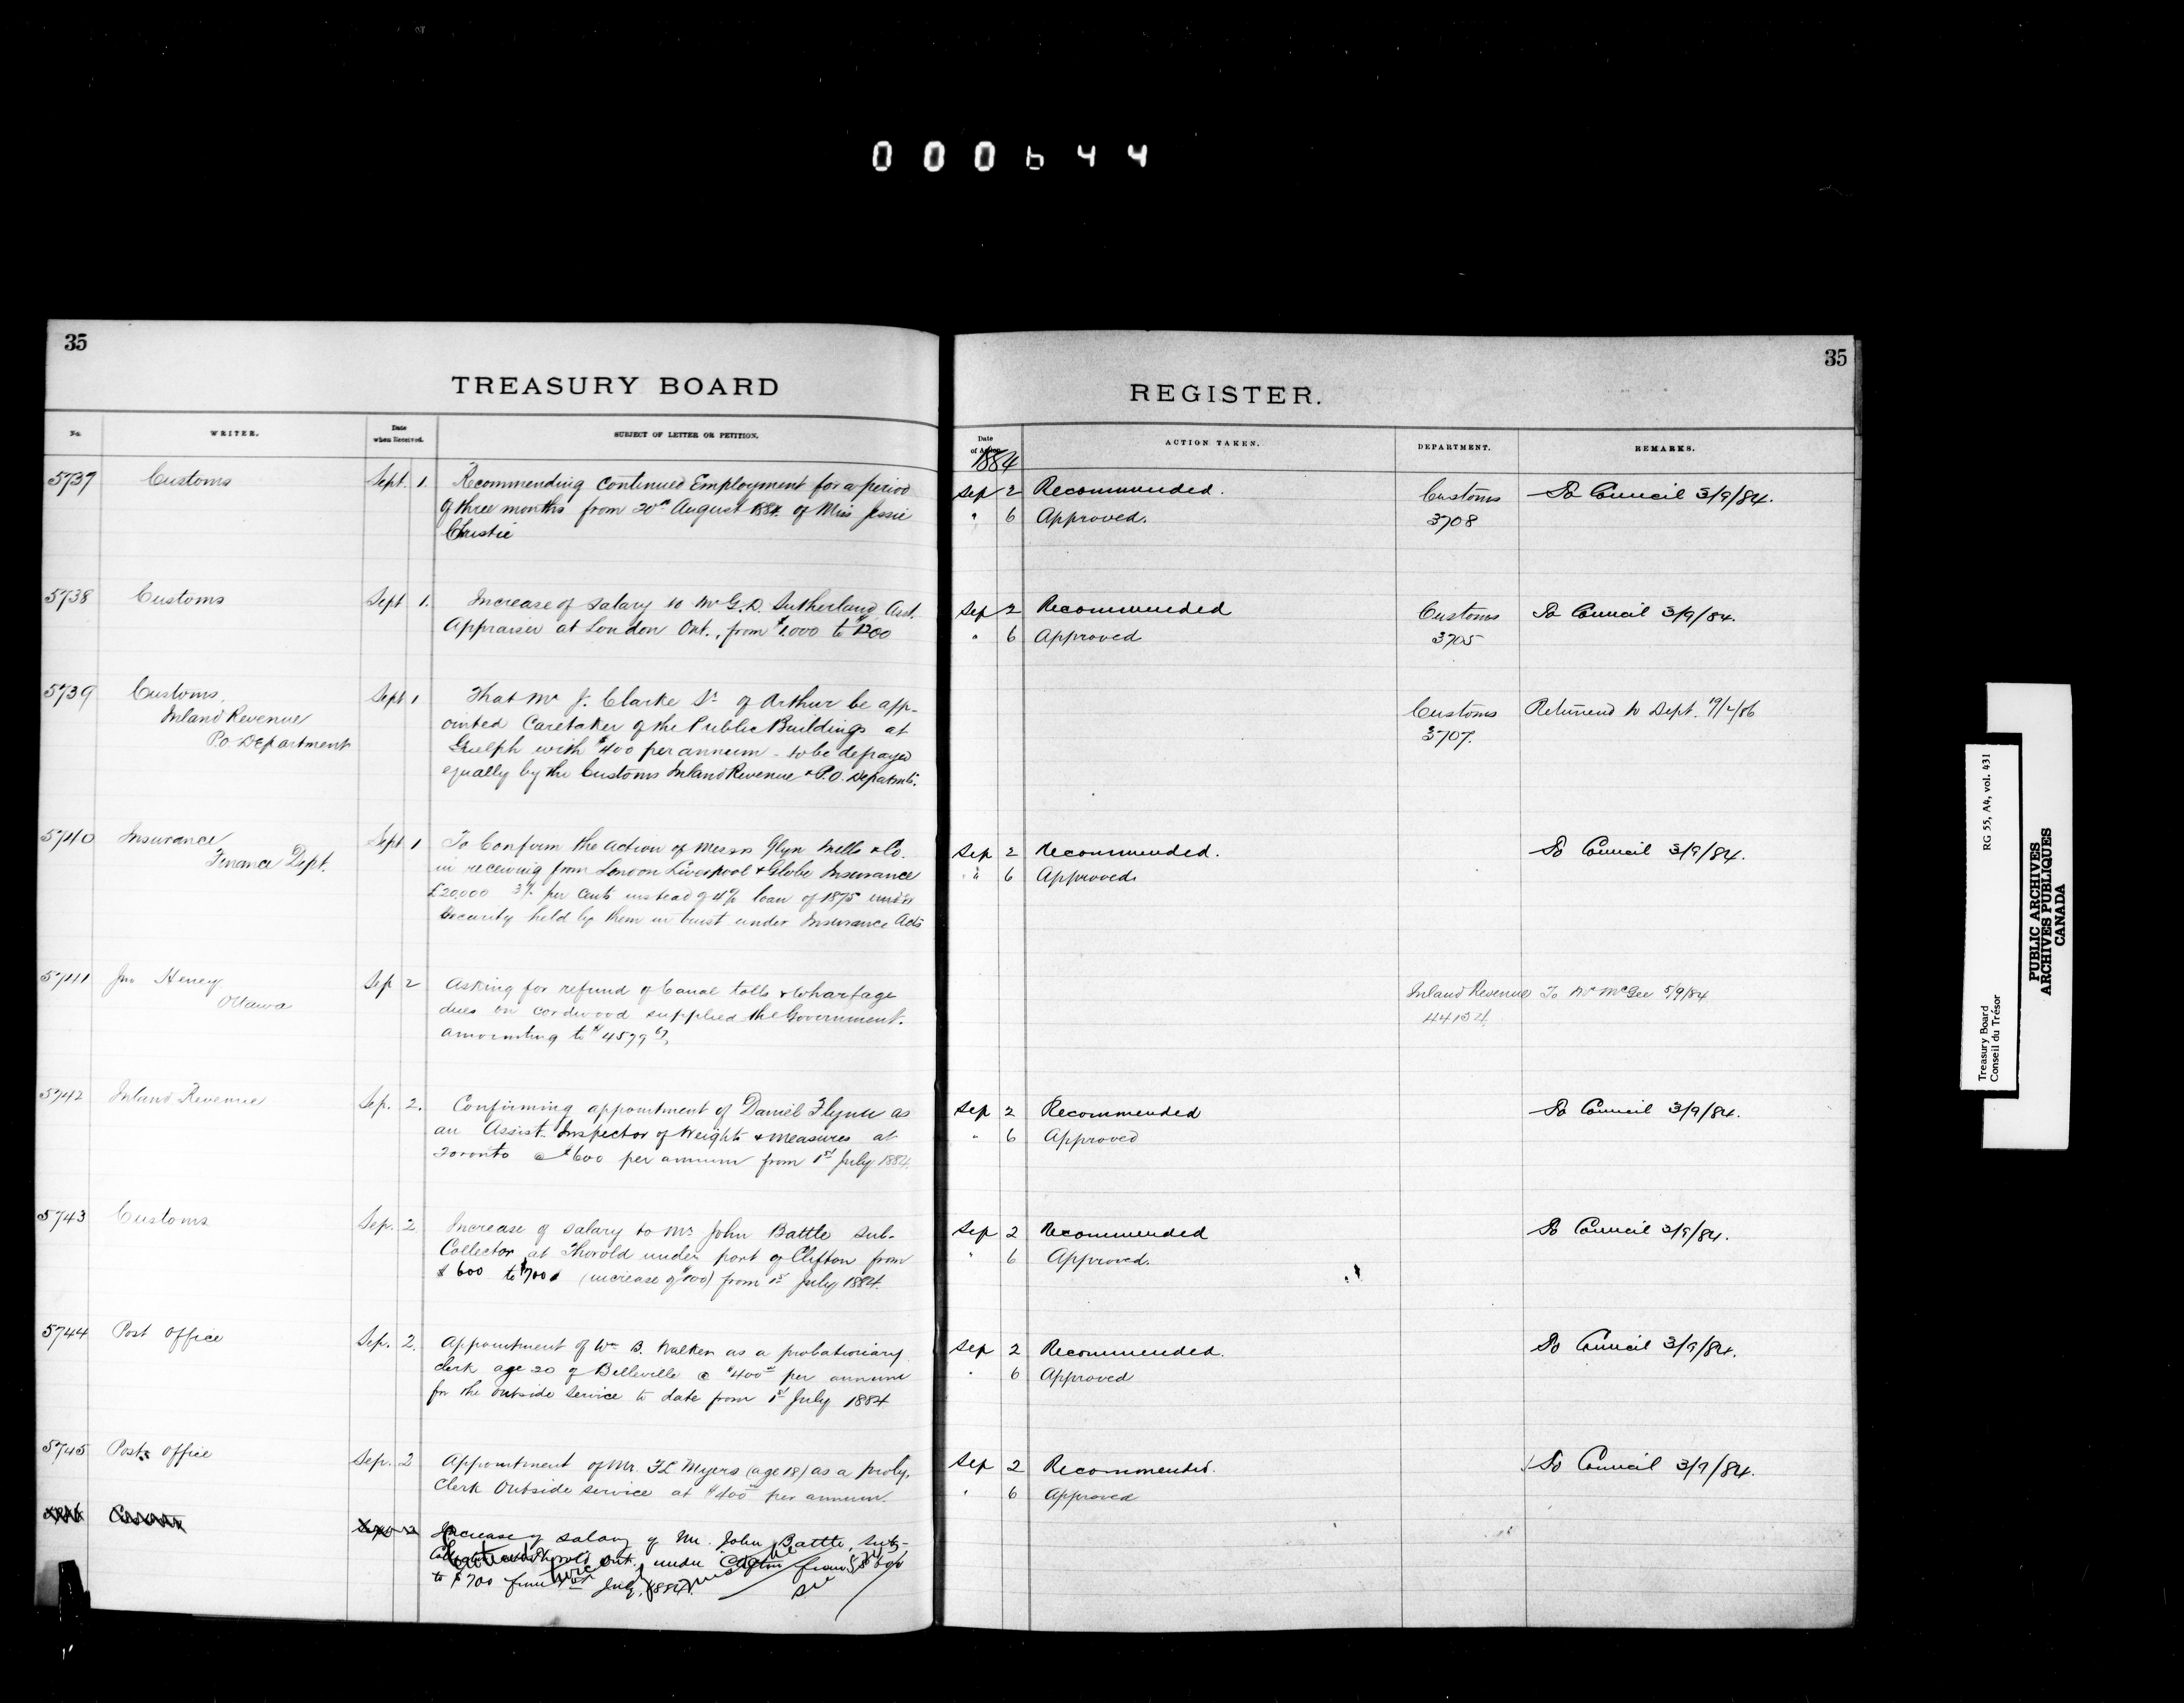 000644
35
TREASURY BOARD
No.
WRITER.
Date when Received.
SUBJECT OF LETTER OR PETITION.
5737 Customs Sept. 1. Recommending Continued Employment for a period
of three months from 20th August 1884 of Miss Jessie
Christie
5738 Customs Sept 1. Increase of salary to Mr G. D. Sutherland Asst.
Appraiser at London Ont., from $1,000 to $1200
5739 Customs, Sept 1 That Mr J. Clarke Sr of Arthur be app-
Inland Revenue
ointed Caretaker of the Public Buildings at
P.O. Department
Guelph with $400 per annum - to be defrayed
equally by the Customs Inland Revenue & P.O. Departmts.
5740 Insurance Sept 1 To Confirm the action of Messrs Glyn Mills & Co.
Finance Dept.
in receiving from London Liverpool & Globe Insurance
£20,000 3½ per cents instead of 4% loan of 1875 under
Security held by them in trust under Insurance Acts
5741 Jno Heney Sep 2 Asking for refund of Canal tolls & Wharfage
Ottawa
dues on cordwood supplied the Government.
amounting to $4579
5742 Inland Revenue Sep. 2. Confirming appointment of Daniel Flynn as
an Assist. Inspector of Weights & Measures at
Toronto @ $600 per annum from 1st July 1884.
5743 Customs Sep. 2 Increase of salary to Mr John Battle Sub-
Collector at Thorold under port of Clifton from
$600 to $700 (increase of $100) from 1st July 1884.
5744 Post Office Sep. 2. Appointment of Wm B. Walker as a probationary
clerk age 20 of Belleville @ $400 per annum
for the outside service to date from 1st July 1884
5745 Post Office Sep. 2 Appointment of Mr. F.L. Myers (age 18) as a proby.
Clerk Outside service at $400 per annum.
Increase of salary of Mr. John Battle, Sub-
under Clifton from $600
to $700 from 1st July, 1884.
35
REGISTER.
Date of Action
ACTION TAKEN.
DEPARTMENT.
REMARKS.
1884
Sep 2 Recommended. Customs To Council 3/9/84.
" 6 Approved. 3708
Sep 2 Recommended Customs To Council 3/9/84.
" 6 Approved 3705
Customs Returned to Dept. 19/2/86
3707.
Sep 2 Recommended. To Council 3/9/84.
" 6 Approved.
Inland Revenue To Mr McGee 5/9/84
44154
Sep 2 Recommended To Council 3/9/84.
" 6 Approved
Sep 2 Recommended To Council 3/9/84.
" 6 Approved.
Sep 2 Recommended. To Council 3/9/84.
" 6 Approved
Sep 2 Recommended. To Council 3/9/84.
" 6 Approved
Treasury Board
Conseil du Trésor
RG 55, A4, vol. 431
PUBLIC ARCHIVES
ARCHIVES PUBLIQUES
CANADA